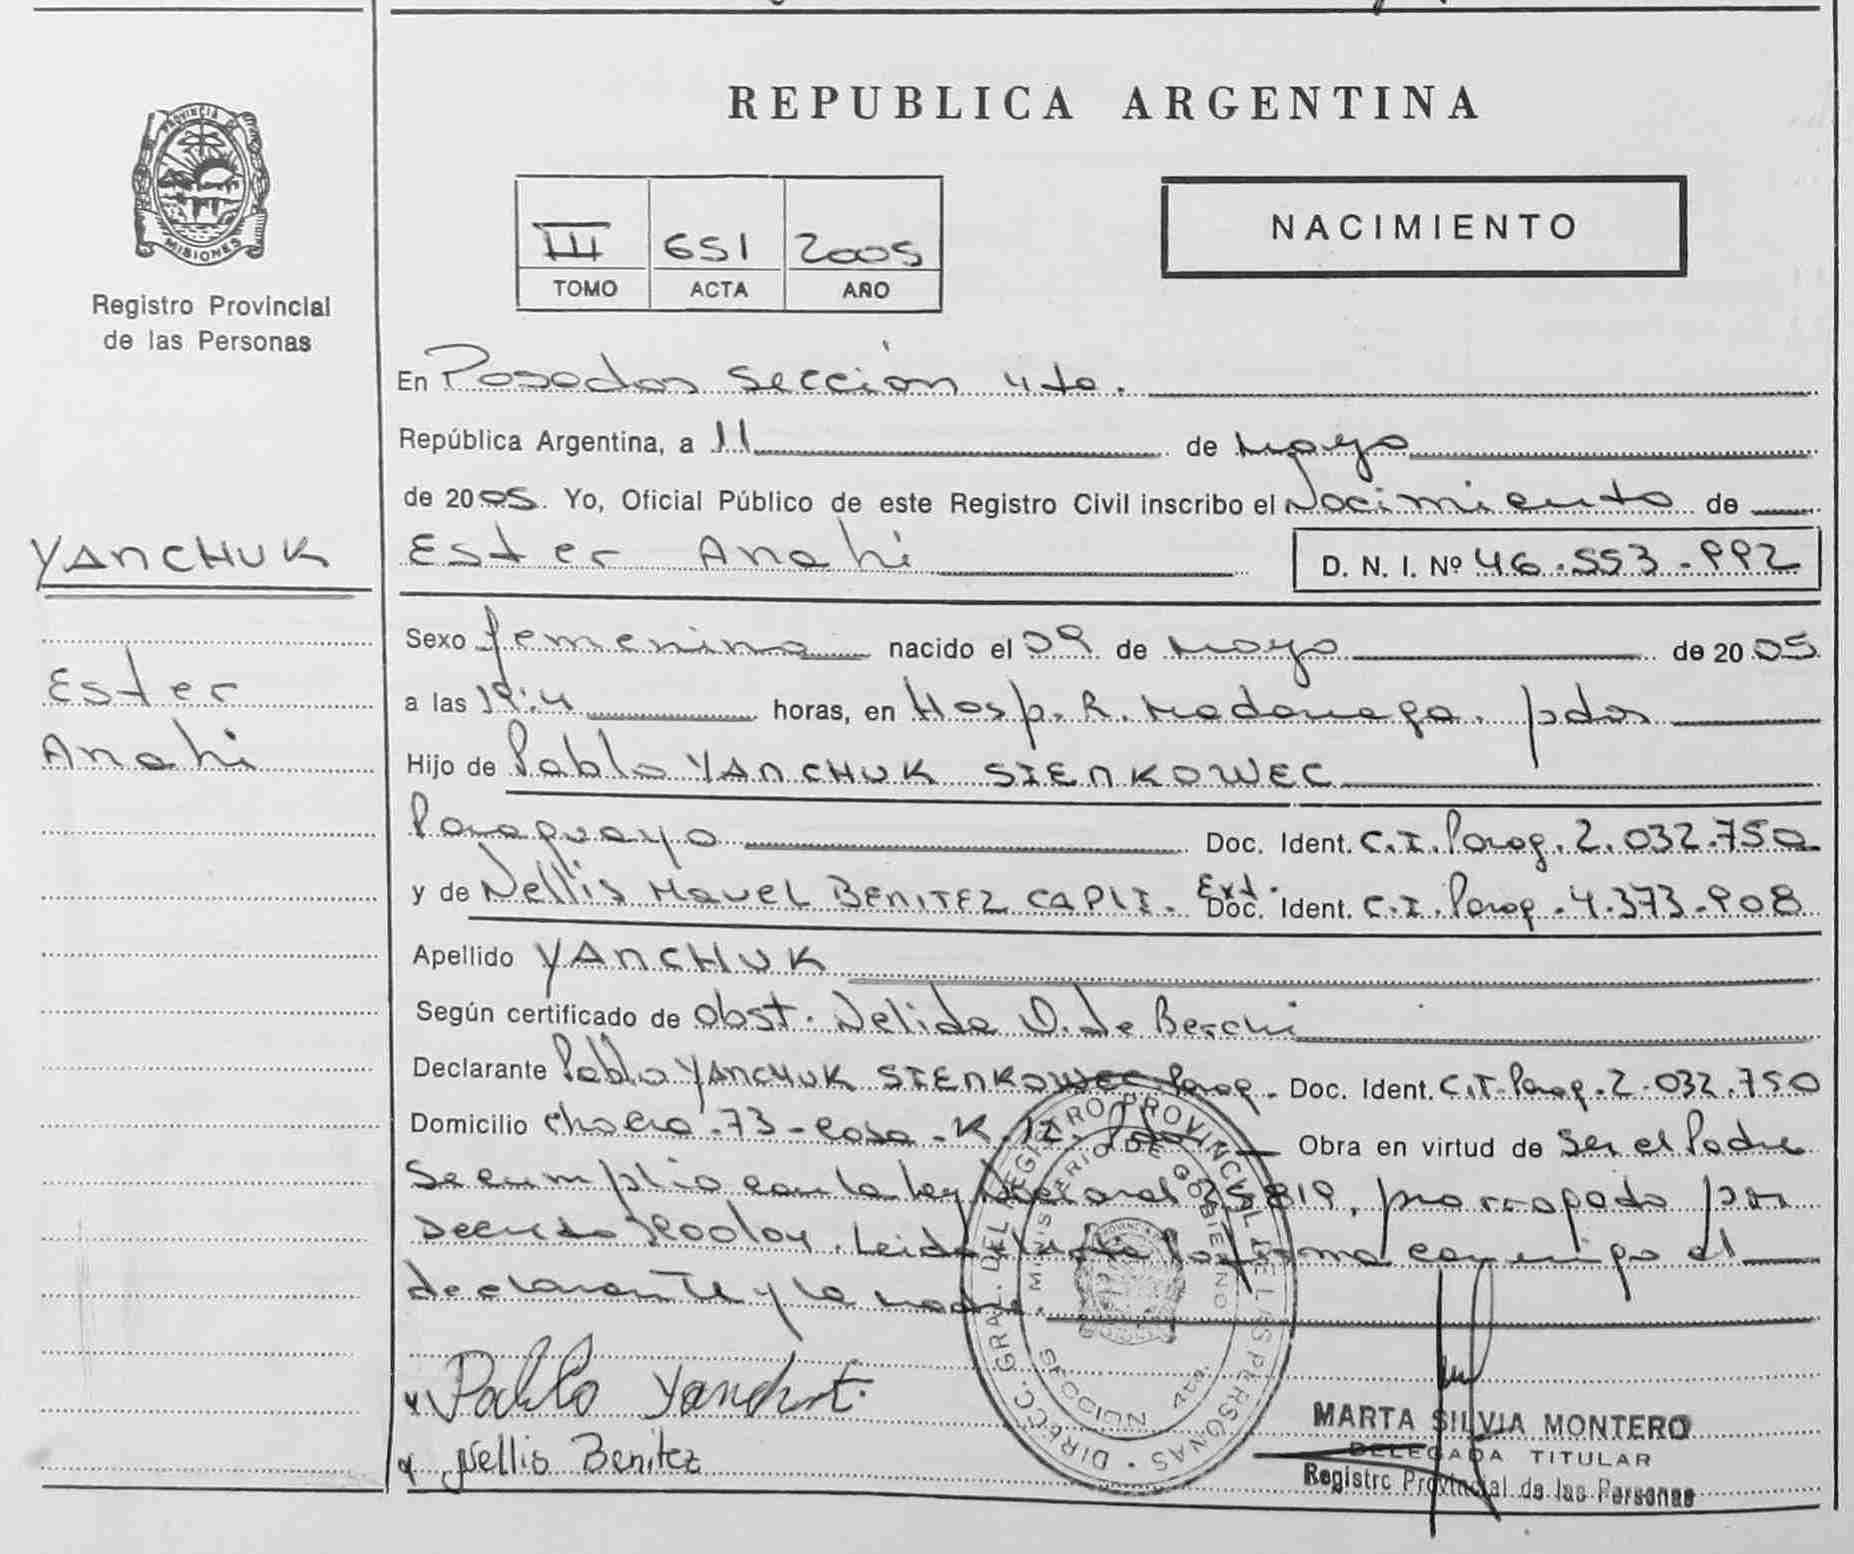 PROVINCIA DE
MISIONES
Registro Provincial
de las Personas
REPUBLICA ARGENTINA
III 651 2005
TOMO ACTA AÑO
NACIMIENTO
En Posadas Sección 4ta.
República Argentina, a 11 de Mayo
de 2005. Yo, Oficial Público de este Registro Civil inscribo el Nacimiento de
YANCHUK
Ester Anahi D. N. I. Nº 46.553.992
Sexo femenino nacido el 09 de Mayo de 2005
Ester
Anahi
a las 19:4 horas, en Hosp. R. Madariaga. pdas
Hijo de Pablo YANCHUK SIENKOWEC
Paraguayo Doc. Ident. C.I. Parag. 2.032.750
y de Nellis Mavel BENITEZ CAPLI. Ext. Doc. Ident. C.I. Parag. 4.373.908
Apellido YANCHUK
Según certificado de obst. Nelida D. de Berchi
Declarante Pablo YANCHUK SIENKOWEC Parag. Doc. Ident. C.I. Parag. 2.032.750
Domicilio chacra 73 - casa - K. 12. Pdas Obra en virtud de Ser el Padre
Se cumplio con la ley 25819, prorrogado por
Decreto Leida el acta la firma conmigo el
declarante y la madre.
Pablo Yanchuk.
Nellis Benitez
DIRECC. GRAL. DEL REGISTRO PROVINCIAL DE LAS PERSONAS
MINISTERIO DE GOBIERNO
SECCION 4ta.
MARTA SILVIA MONTERO
DELEGADA TITULAR
Registro Provincial de las Personas